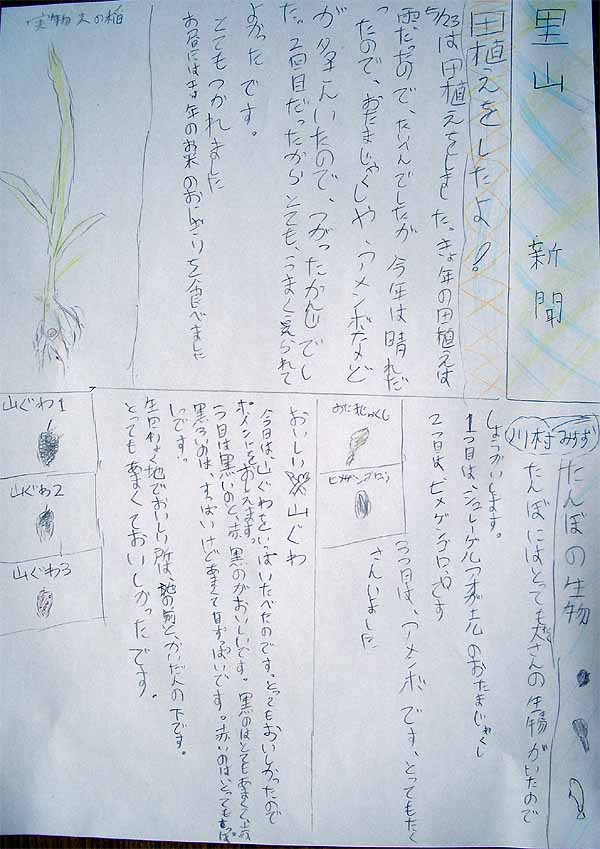 里山 新聞
田植えをしたよ!
5/23は田植えをしました。きょ年の田植えは
雨だったので、たいへんでしたが今年は晴れだ
ったので、おたまじゃくしや、アメンボなど
がたくさんいたので、つかったかんじでし
た。2回目だったから とても、うまく見られて
よかったです。
とてもつかれました
お昼にはきょ年のお米のおにぎりを食べました
実物大の稲
川村みすず
たんぼの生物
たんぼにはとても大さんの生物がいたので
しょうかいします。
1つ目は、シュレーゲルアオガエルのおたまじゃくし
2つ目は、ヒメゲンゴロウです
おたまじゃくし
ヒメゲンゴロウ
3つ目は、アメンボです、とってもたく
さんいました
おいしい山ぐわ
今日は、山ぐわをいっぱいたべたのです。とってもおいしかったので
ポイントをおしえます。
1つ目は黒いのと、赤黒のがおいしいです。黒のはとてもあまくて、赤
黒いのは、すっぱいけどあまくて甘ずっぱいです。赤いのは、とってもすっぱ
いです。
生田りょく地でおいしい所は、池の前と、かいだ人の下です。
とってもあまくておいしかったです。
山ぐわ1
山ぐわ2
山ぐわ3